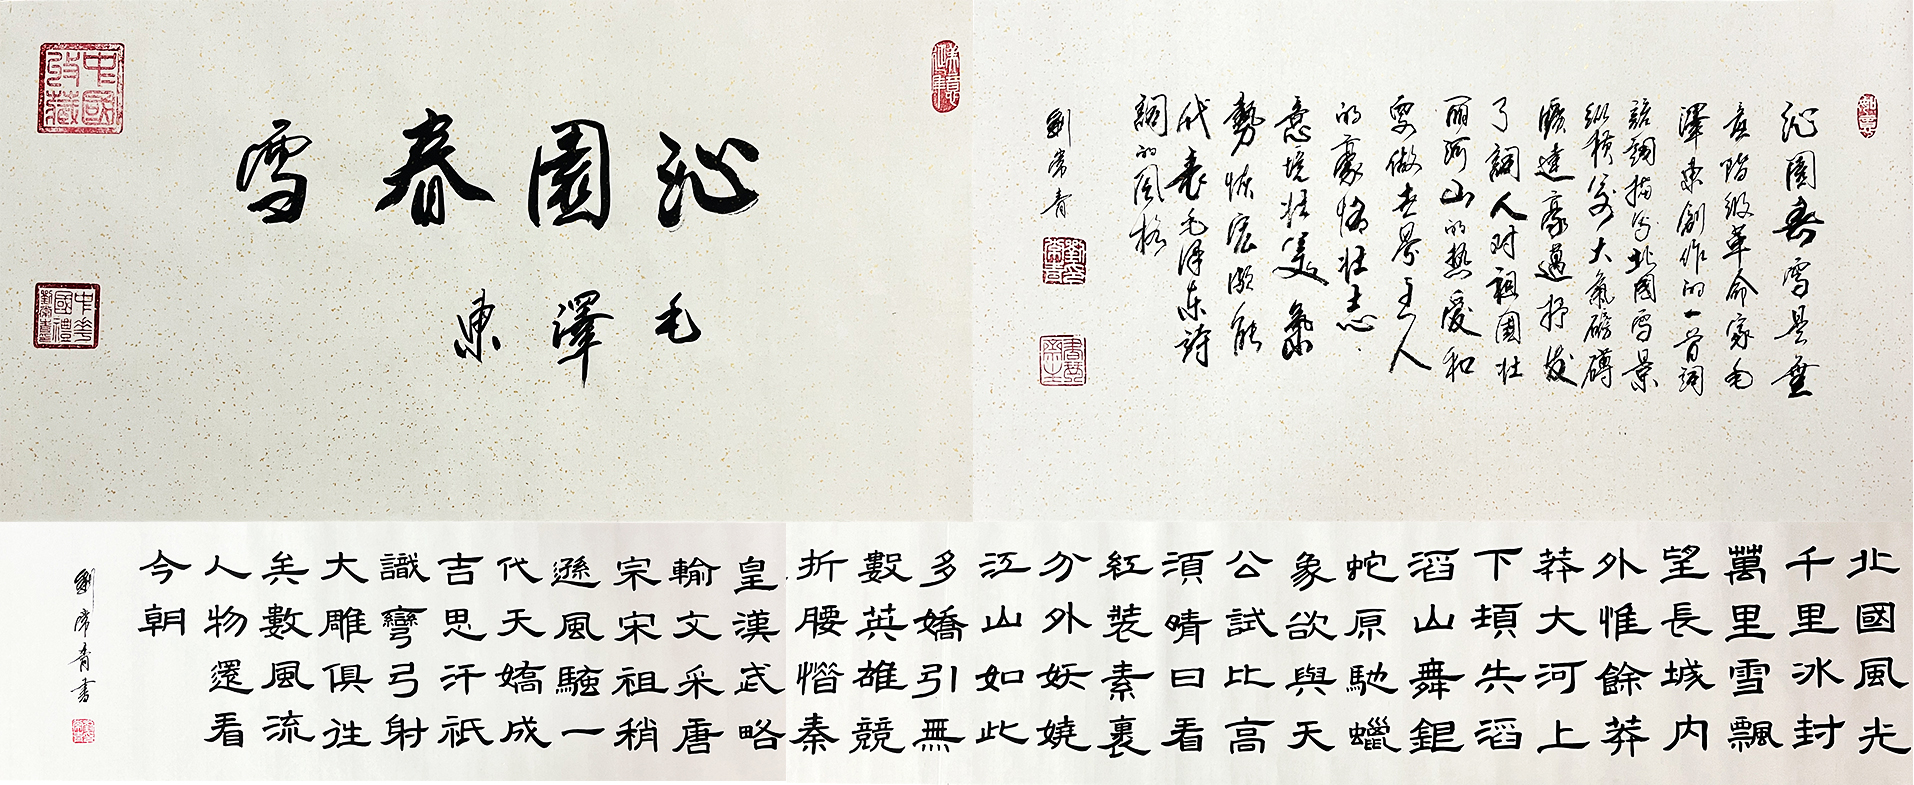 沁園春雪
毛澤東
中國收藏
中華國禮
沁園春雪是無
産階級革命家毛
澤東創作的一首詞
該詞描写北國雪景
纵横大氣磅礴
曠達豪邁抒发
了詞人对祖國壮
丽河山的热爱和
要做世界主人
的豪情壮志
意境壮美氣
勢恢宏颇能
代表毛泽东詩
詞的风格
劉常青
北國風光
千里冰封
萬里雪飄
望長城内
外惟餘莽
莽大河上
下頓失滔
滔山舞銀
蛇原馳蠟
象欲與天
公試比高
須晴日看
紅裝素裹
分外妖嬈
江山如此
多嬌引無
數英雄競
折腰惜秦
皇漢武略
輸文采唐
宋宋祖稍
遜風騷一
代天嬌成
吉思汗祇
識彎弓射
大雕俱往
矣數風流
人物還看
今朝
劉常青書